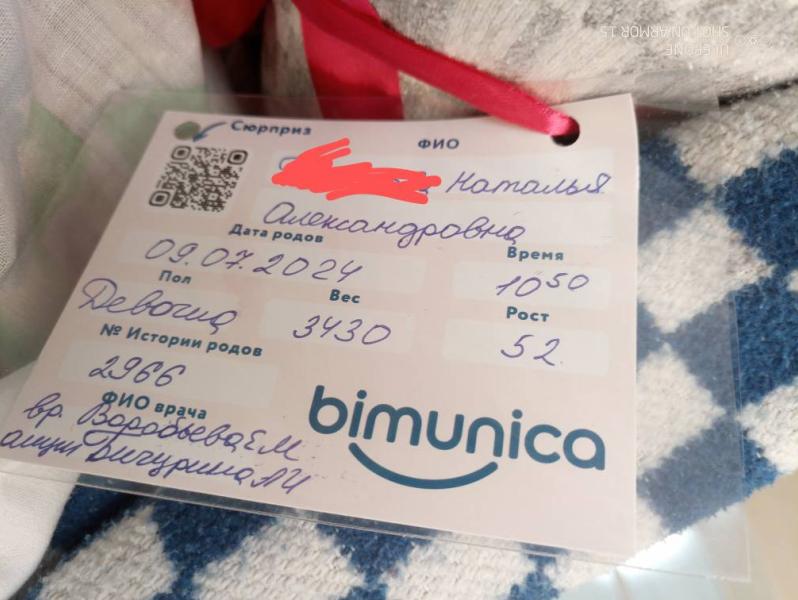 Сюрприз
ФИО
Наталья
Александровна
Дата родов
Время
09.07.2024
10 50
Пол
Вес
Рост
Девочка
3430
52.
№ Истории родов
2966
ФИО врача
вр. Воробьева Е М
Бичурина
bimunica
SHOT ON ARMOR 15
ULEFONE